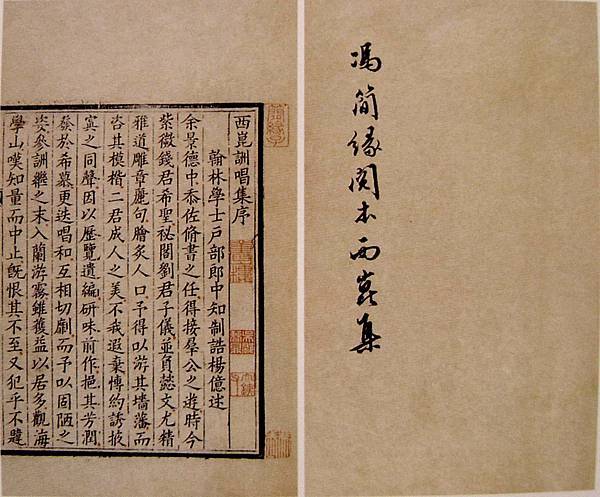 馮簡緣閱本西崑集
西崑詶唱集序
翰林學士戶部郎中知制誥楊億述
余景德中忝佐脩書之任得接羣公之遊時今
紫微錢君希聖秘閣劉君子儀並負懿文尤精
雅道雕章麗句膾炙人口予得以游其墻藩而
咨其模楷二君成人之美不我遐棄博約誘掖
寘之同聲因以歷覽遺編研味前作挹其芳潤
發於希慕更迭唱和互相切劘而予以固陋之
姿參詶繼之末入蘭游霧雖獲益以居多觀海
學山嘆知量而中止旣恨其不至又犯乎不韙